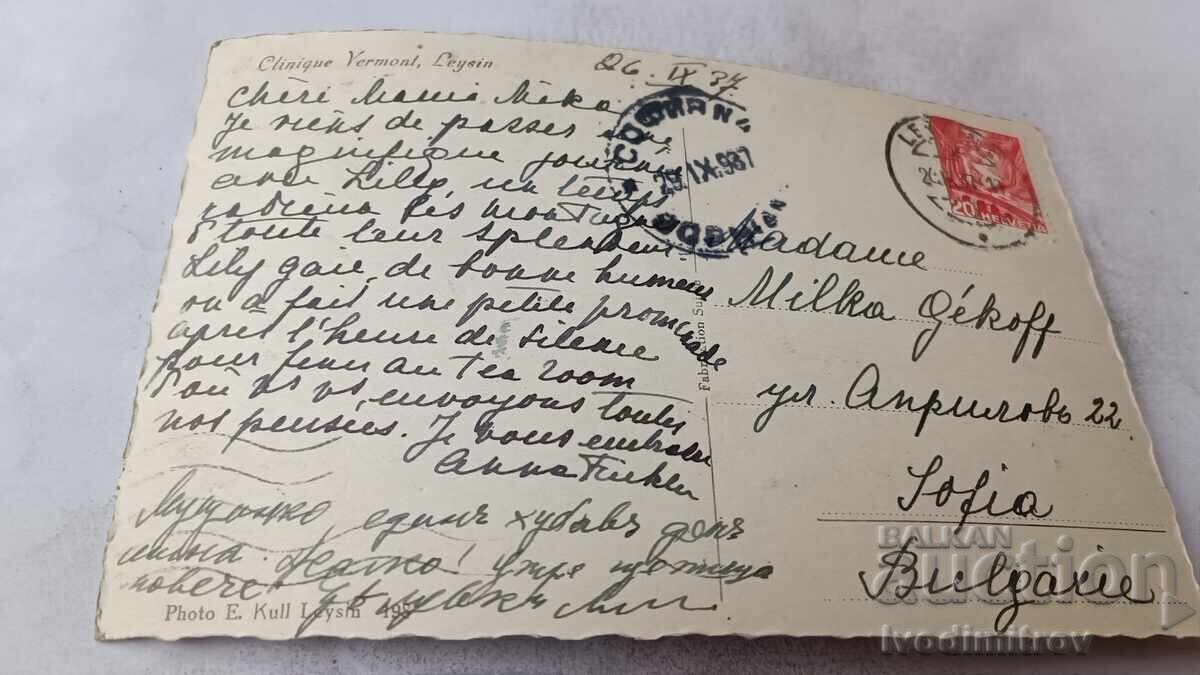 Clinique Vermont, Leysin
26. IX 37
Chèri Mama Mika
Je viens de passer une
magnifique journée
avec Lilly, un temps
radieux les montagnes
toute leur splendeur
Lily gaie, de bonne humeur
on a fait une petite promenade
après l'heure de silence
pour finir au Tea room
d'où ns vs envoyons toutes
nos pensées. Je vous embrasse
Anna
единъ хубавъ денъ
утре
повече
Photo E. Kull Leysin
Fabrication Sui
29.IX.937
20 HELVETIA
Madame
Milka Gékoff
ул. Априловъ 22
Sofia
Bulgarie
BALKAN
auction
Ivodimitrov